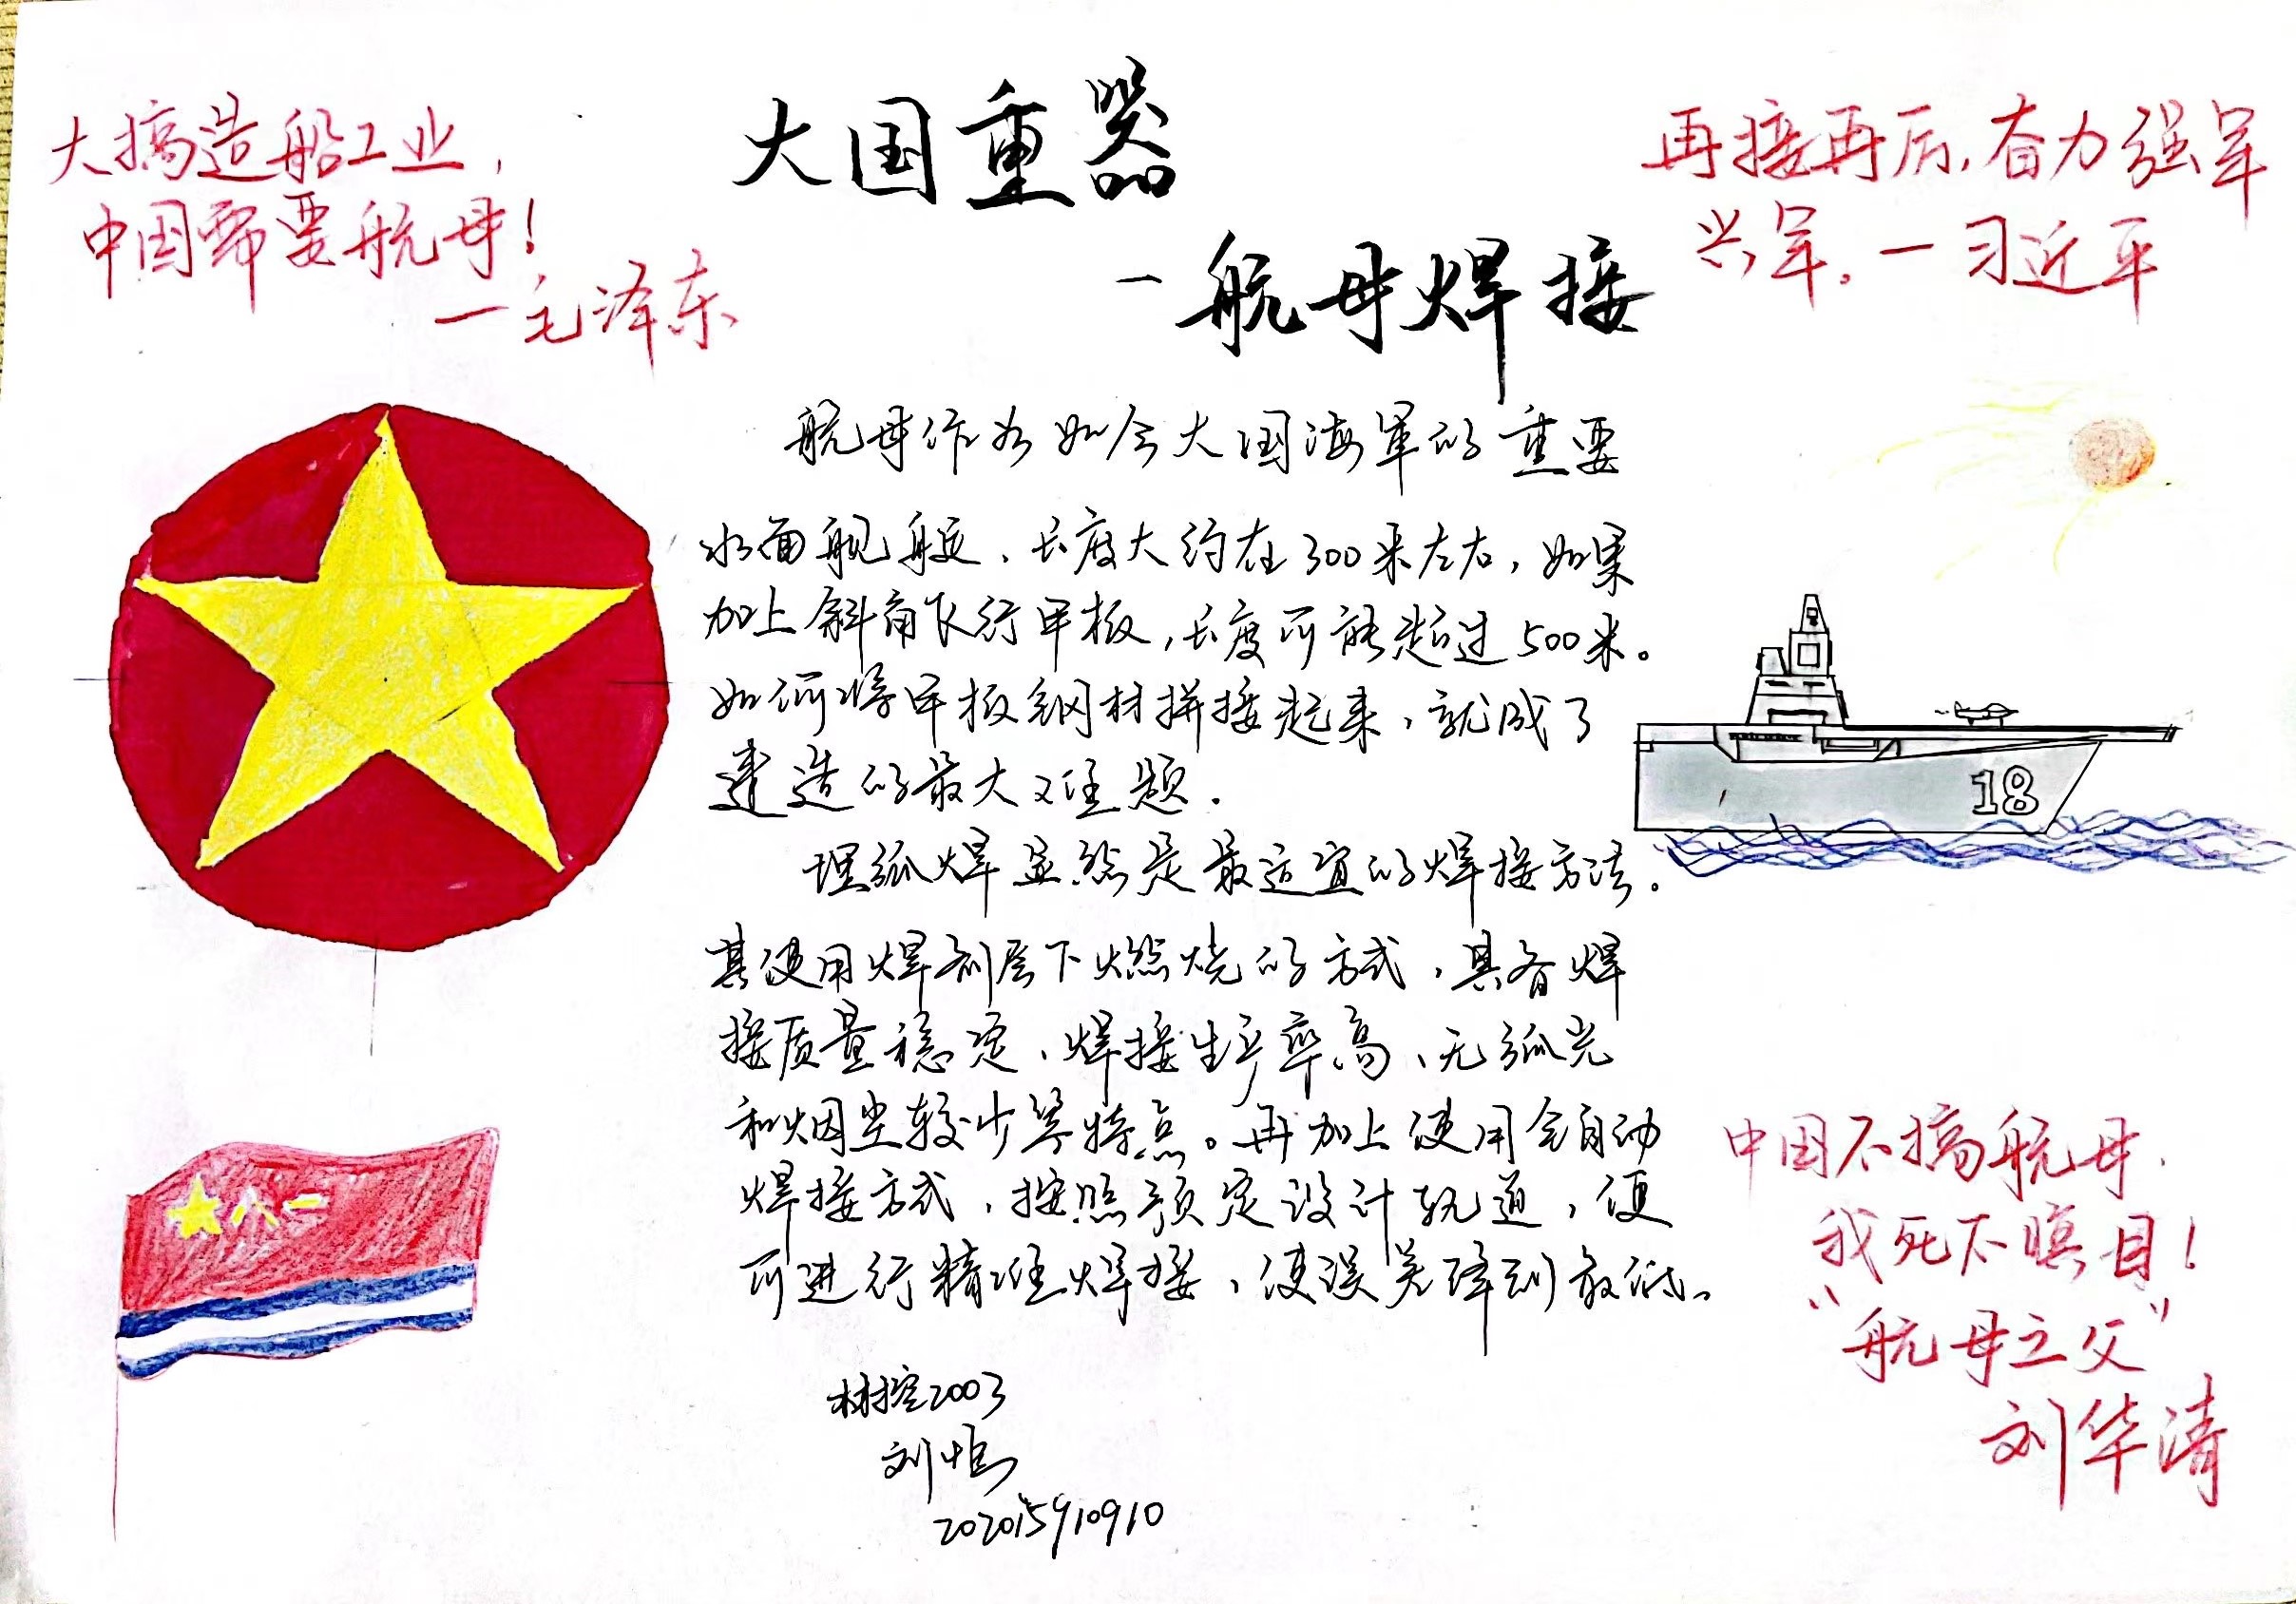 大搞造船工业，
中国需要航母！
—毛泽东
大国重器
—航母焊接
再接再厉，奋力强军
兴军。—习近平
航母作为如今大国海军的重要
水面舰艇、长度大约在300米左右，如果
加上斜角飞行甲板，长度可能超过500米。
如何将甲板钢材拼接起来，就成了
建造的最大难题.
埋弧焊显然是最适宜的焊接方法。
其使用焊剂层下燃烧的方式，具备焊
接质量稳定、焊接生产率高、无弧光
和烟尘较少等特点。再加上使用全自动
焊接方式，按照预定设计轨道，便
可进行精准焊接，使误差降到最低。
18
八一
中国不搞航母.
我死不瞑目！
"航母之父"
刘华清
材控2003
刘恒
202015910910